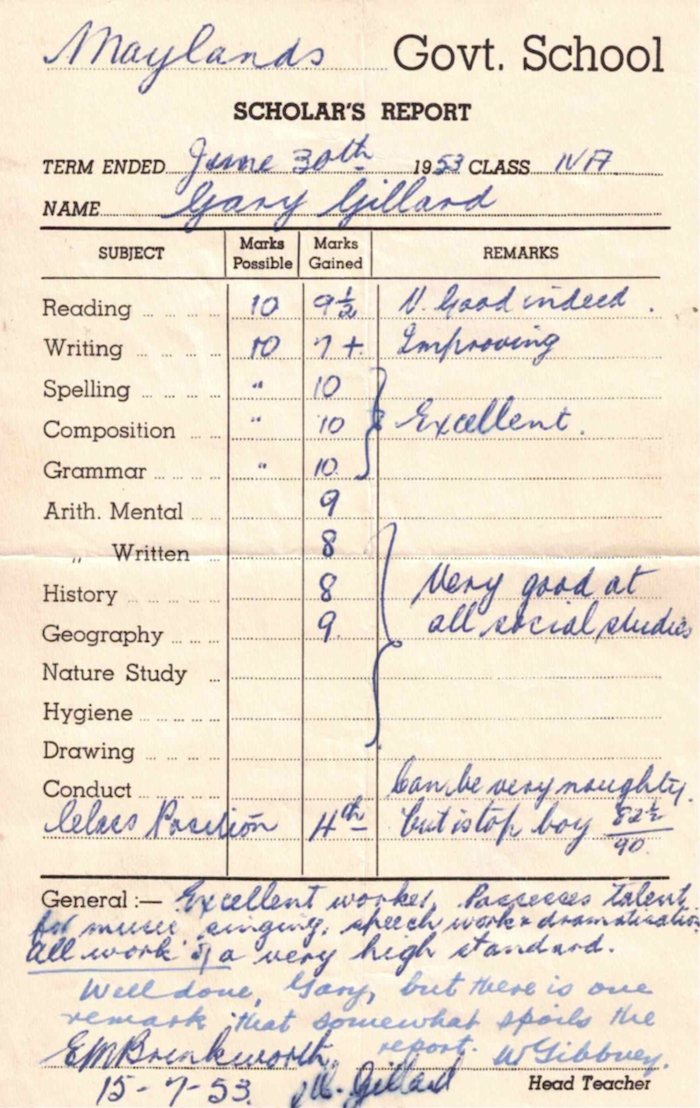 Maylands Govt. School
SCHOLAR'S REPORT
TERM ENDED June 30th 1953 CLASS IVA
NAME Gary Gillard
SUBJECT Marks Possible Marks Gained REMARKS
Reading 10 9½ V. Good indeed.
Writing 10 7+ Improving
Spelling " 10
Composition " 10 Excellent.
Grammar " 10
Arith. Mental 9
„ Written 8
History 8 Very good at
Geography 9 all social studies
Nature Study
Hygiene
Drawing
Conduct Can be very naughty.
Class Position 4th but is top boy 82½/90
General :— Excellent worker. Possesses talent
for music, singing, speech work & dramatisation
All work of a very high standard.
Well done, Gary, but there is one
remark that somewhat spoils the
report. W Gibbney.
E M Brinkworth
15-7-53. Gillard Head Teacher